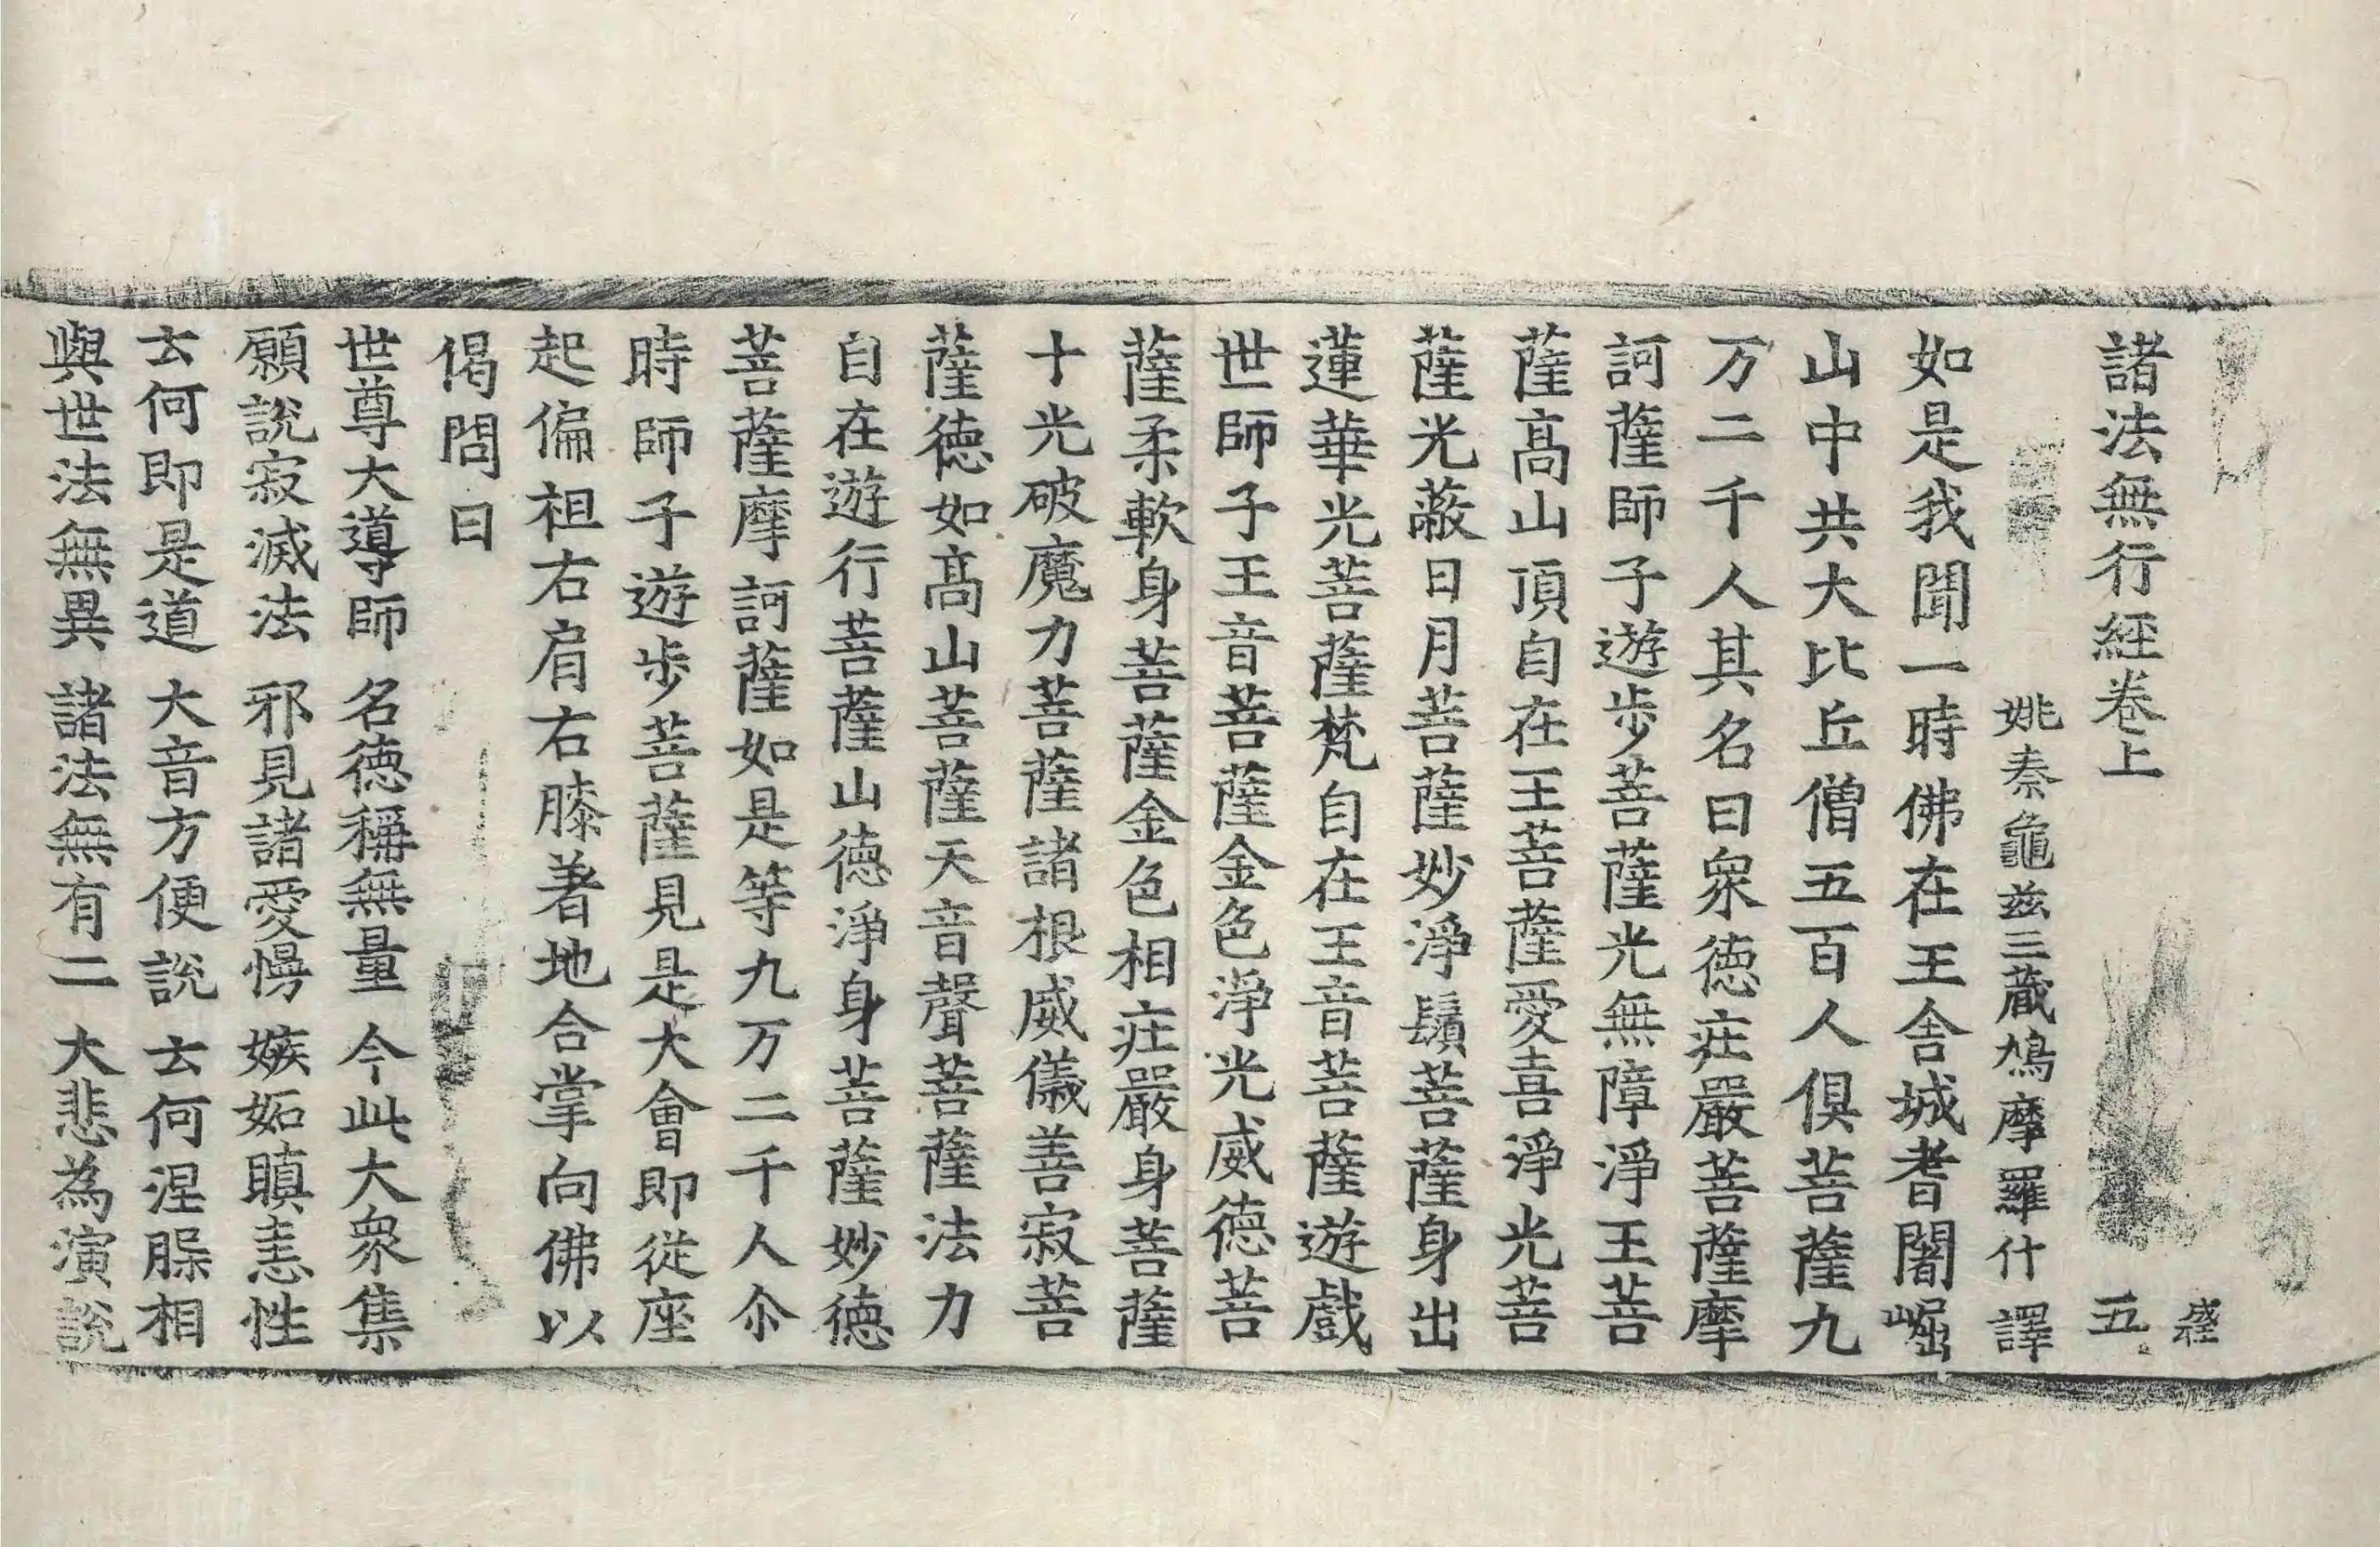 諸法無行經卷上　五
姚秦龜茲三藏鳩摩羅什　譯
如是我聞一時佛在王舍城耆闍崛
山中共大比丘僧五百人俱菩薩九
万二千人其名曰衆德莊嚴菩薩摩
訶薩師子遊步菩薩光無障淨王菩
薩髙山頂自在王菩薩愛喜淨光菩
薩光蔽日月菩薩妙淨鬚菩薩身出
蓮華光菩薩梵自在王音菩薩遊戲
世師子王音菩薩金色淨光威德菩
薩柔軟身菩薩金色相莊嚴身菩薩
十光破魔力菩薩諸根威儀善寂菩
薩德如髙山菩薩天音聲菩薩法力
自在遊行菩薩山德淨身菩薩妙德
菩薩摩訶薩如是等九万二千人尒
時師子遊步菩薩見是大會即從座
起偏袒右肩右膝著地合掌向佛以
偈問曰
世尊大導師　名德稱無量　今此大衆集
願說寂滅法　邪見諸愛慢　嫉妬瞋恚性
云何即是道　大音方便說　云何涅槃相
與世法無異　諸法無有二　大悲為演說